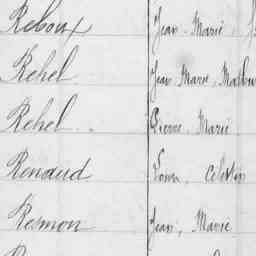 Reboux Jean Marie
Rehel Jean Marie, Mathu
Rehel Pierre, Marie
Renaud Louis, Célestin
Resmon Jean, Marie